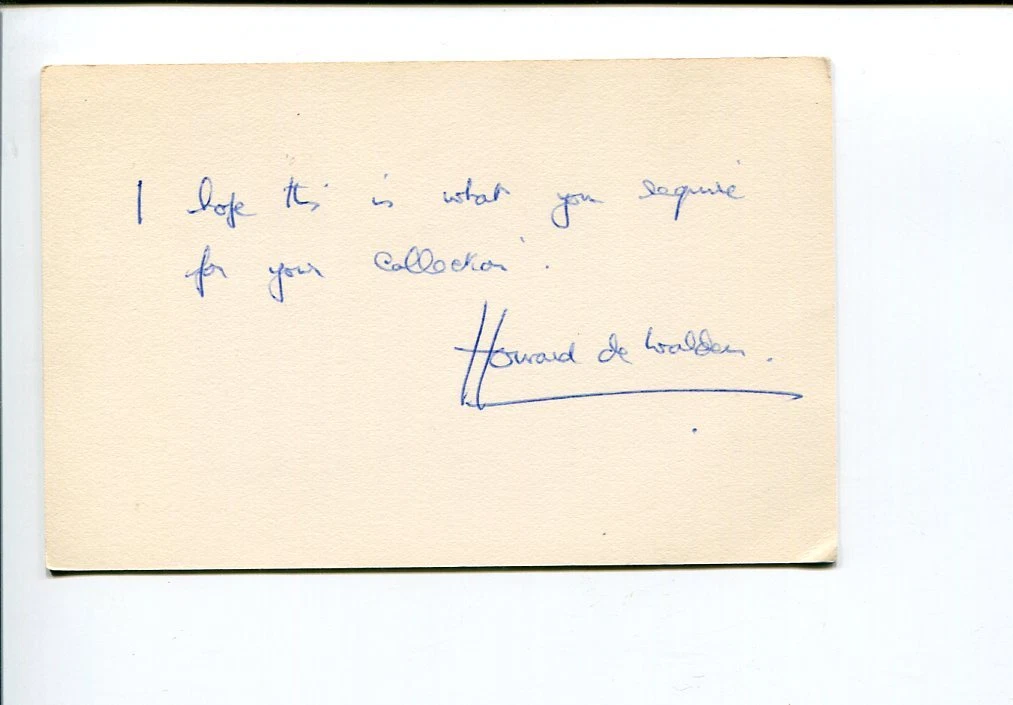 I hope this is what you require
for your collection.
Howard de Walden.